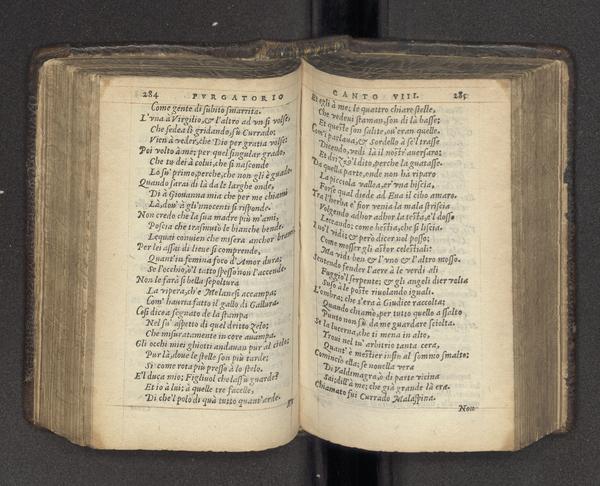 284 PVRGATORIO
Come gente di subito smarrita.
L'vna à Virgilio, & l'altro ad vn si volse,
Che sedea lì gridando, sù Currado;
Vien à veder, che Dio per gratia volse:
Poi volto à me; per quel singular grado,
Che tu dei à colui, che si nasconde
Lo su' primo perche, che non gli è guado
Quando sarai di là da le larghe onde,
Di à Giouanna mia che per me chiami
Là, dou' à gl'innocenti si risponde.
Non credo che la sua madre più m'ami,
Poscia che trasmutò le bianche bende.
Lequai conuien che misera anchor brami
Per lei assai di lieue si comprende,
Quant'in femina foco d'Amor dura;
Se l'occhio, o'l tatto spesso non l'accende.
Non le farà si bella sepoltura
La vipera, ch'e Melanesi accampa;
Com' hauria fatto il gallo di Gallura.
Cosi dicea segnato de la stampa
Nel su' aspetto di quel dritto zelo;
Che misuratamente in core auampa.
Gli occhi miei ghiotti andauan pur al cielo;
Pur là, doue le stelle son più tarde;
Si come rota più presso à lo stelo.
E'l duca mio; Figliuol che lassù guarde?
Et io à lui; à quelle tre facelle,
Di che'l polo di quà tutto quant'arde.
CANTO VIII. 285
Et egli à me; le quattro chiare stelle,
Che vedeui staman, son di là basse;
Et queste son salite, ou'eran quelle.
Com'i parlaua, & Sordello à se'l trasse
Dicendo, vedi là il nostr'auersaro;
Et drizzò'l dito, perche là guatasse.
Da quella parte, onde non ha riparo
La picciola vallea, er'vna biscia,
Forse qual diede ad Eua il cibo amaro.
Tra l'herba e' fior venia la mala striscia
Volgendo adhor adhor la testa, e'l dosso
Leccando; come bestia, che si liscia.
I no'l vidi; & però dicer nol posso;
Come mosser gli astor celestiali:
Ma vidi ben & l'vno & l'altro mosso.
Sentendo fender l'aere à le verdi ali
Fuggio'l serpente; & gli angeli dier volta
Suso à le poste riuolando iguali.
L'ombra; che s'era à Giudice raccolta;
Quando chiamò, per tutto quello assalto
Punto non fù da me guardare sciolta.
Se la lucerna, che ti mena in alto,
Troui nel tu' arbitrio tanta cera,
Quant' è mestier insin al sommo smalto;
Cominciò ella; se nouella vera
Di Valdimagra, ò di parte vicina
Sai, dill'à me; che già grande là era.
Chiamato fui Currado Malaspina.
Non